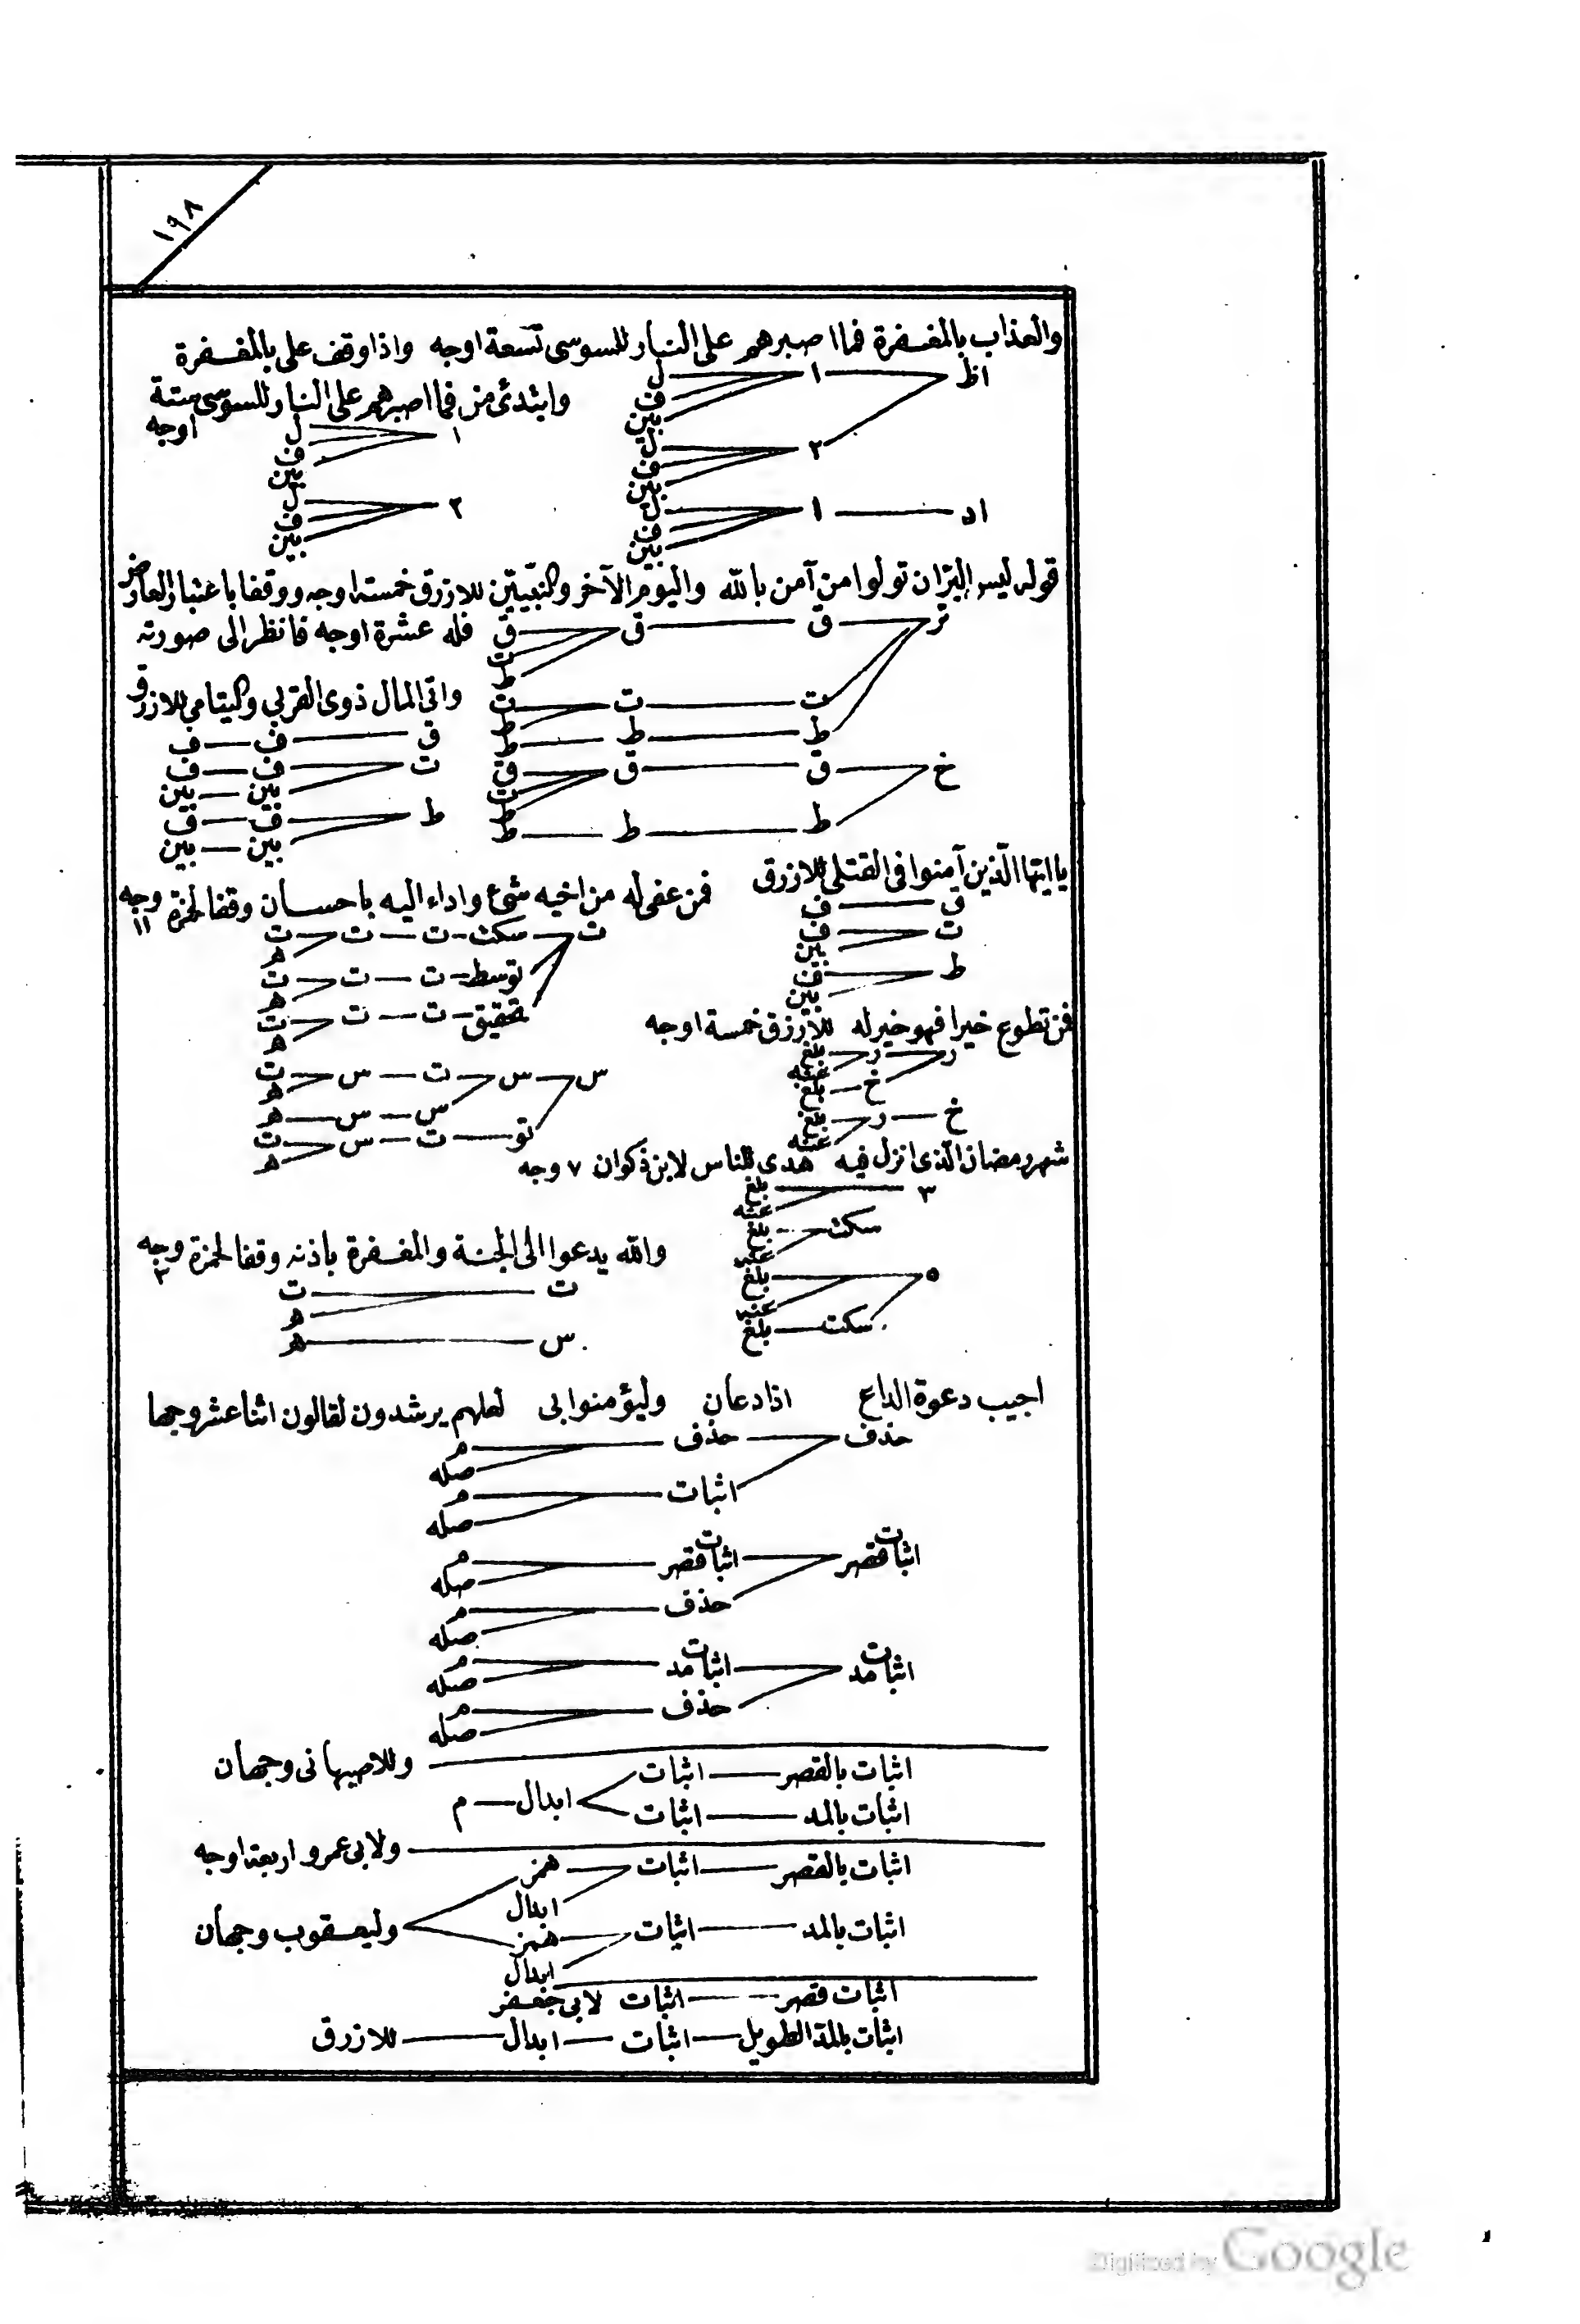 ١٩٨
والعذاب بالمغفرة فما اصبرهم على النار للسوسى تسعة اوجه واذا وقف على بالمغفرة
اظ ١ ل
ف
بين
وابتدئ من فما اصبرهم على النار للسوسى ستة
اوجه
٢ ل
ف
بين
١ ل
ف
بين
اد ١ ل
ف
بين
٢ ل
ف
بين
قوله ليس البرّ ان تولوا من آمن بالله واليوم الآخر والنبيّين للازرق خمسة اوجه ووقفا باعتبار العارض
تر ق ق ق
ت
ط
فله عشرة اوجه فانظر الى صورته
ت ت ت
ط
ط ط ط
خ ق ق ق
ت
ط
ط ط ط
واتى المال ذوى القربى واليتامى للازرق
ق ف ف
ت ف ف
بين بين
ط ف ف
بين بين
يا ايّها الّذين آمنوا فى القتلى للازرق
ق ف
ت ف
بين
ط ف
بين
فمن عفى له من اخيه شئ واداء اليه باحسان وقفا لحمزة ١١ وجه
ت سكت ت ت ت
ه
توسط ت ت ت
ه
تحقيق ت ت ت
ه
س س ت س ت
ه
س س ه
تو ت س ت
ه
فمن تطوع خيرا فهو خير له للازرق خمسة اوجه
ر ر بلغ
عنه
خ بلغ
خ ر بلغ
عنه
شهر رمضان الّذى انزل فيه هدى للناس لابن ذكوان ٧ وجه
٣ بلغ
عنه
سكت بلغ
عنه
٥ بلغ
عنه
سكت بلغ
والله يدعوا الى الجنة والمغفرة باذنه وقفا لحمزة ٣ وجه
ت ت
ه
س ه
اجيب دعوة الداع اذا دعان وليؤمنوا بى لعلهم يرشدون لقالون اثنا عشر وجها
حذف حذف م
صله
اثبات م
صله
اثبات قصر اثبات قصر م
صله
حذف م
صله
اثبات مد اثبات مد م
صله
حذف م
صله
وللاصبهانى وجهان
اثبات بالقصر اثبات
ابدال م
اثبات بالمد اثبات
ولابى عمرو اربعة اوجه
اثبات بالقصر اثبات همز
ابدال
وليعقوب وجهان
اثبات بالمد اثبات همز
ابدال
اثبات قصر اثبات لابى جعفر
اثبات بالمدّ الطويل اثبات ابدال للازرق
Digitized by Google